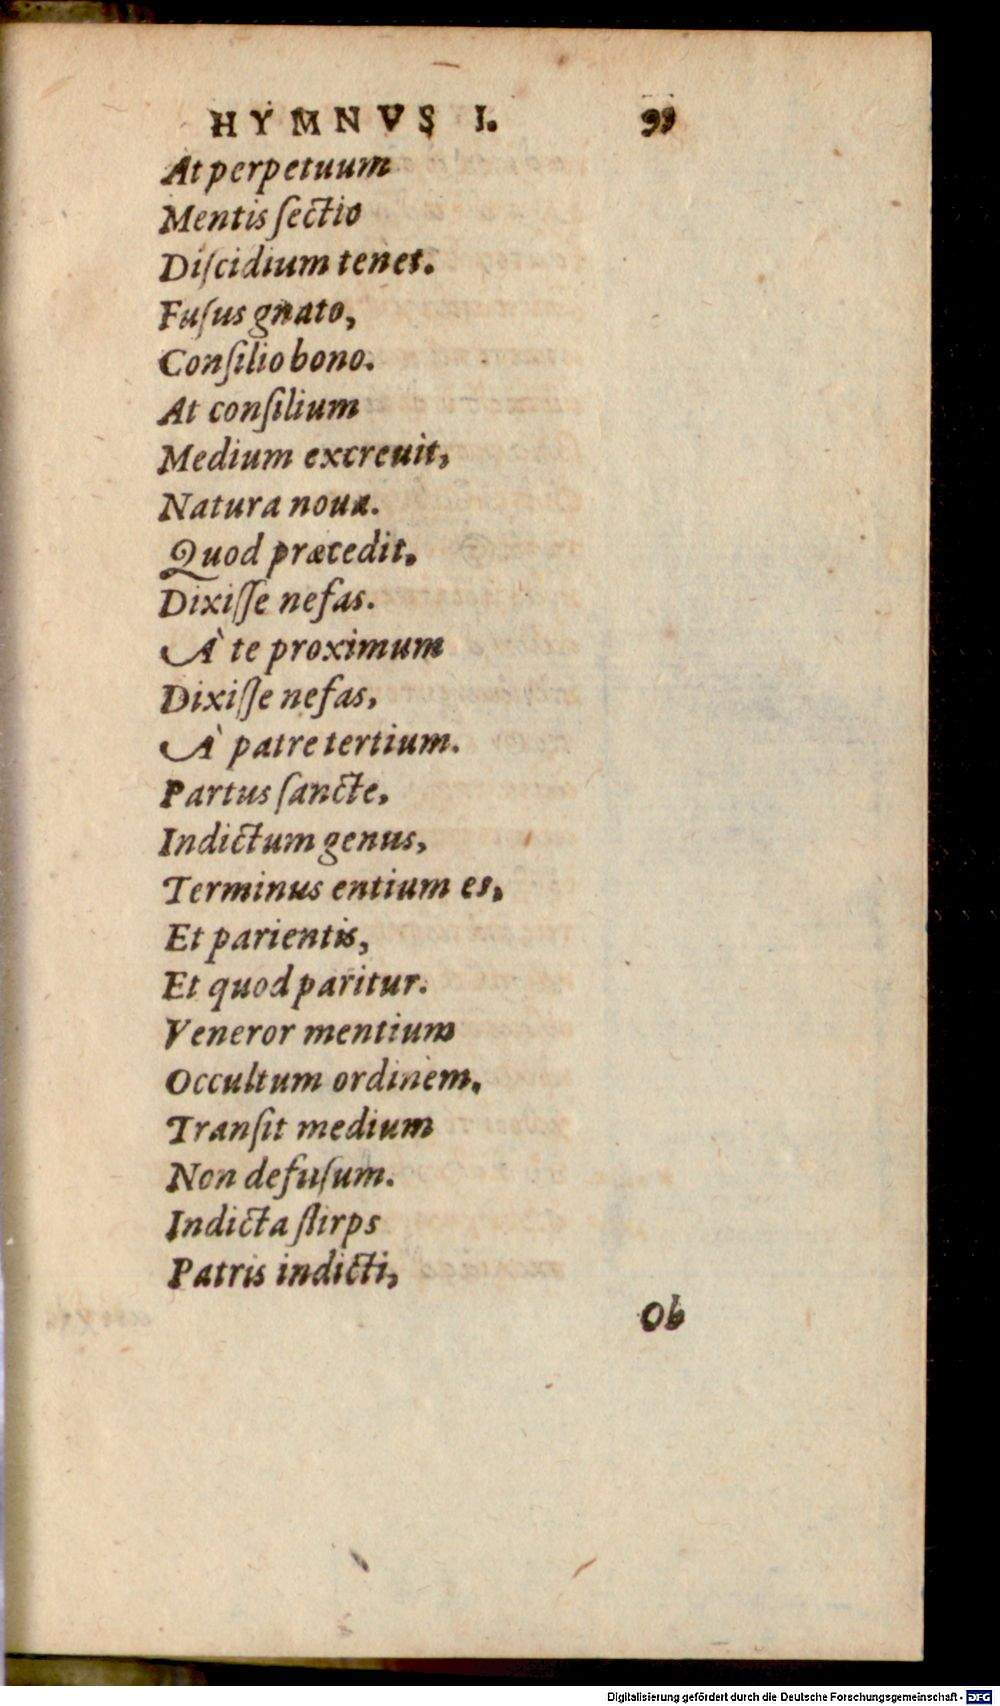 HYMNVS I. 93
At perpetuum
Mentis ſectio
Diſcidium tenet.
Fuſus gnato,
Conſilio bono.
At conſilium
Medium excreuit,
Natura noua.
Quod præcedit.
Dixiſſe nefas.
À te proximum
Dixiſſe nefas,
À patre tertium.
Partus ſancte,
Indictum genus,
Terminus entium es,
Et parientis,
Et quod paritur.
Veneror mentium
Occultum ordinem,
Tranſit medium
Non defuſum.
Indicta ſtirps
Patris indicti,
Ob
Digitalisierung gefördert durch die Deutsche Forschungsgemeinschaft - DFG